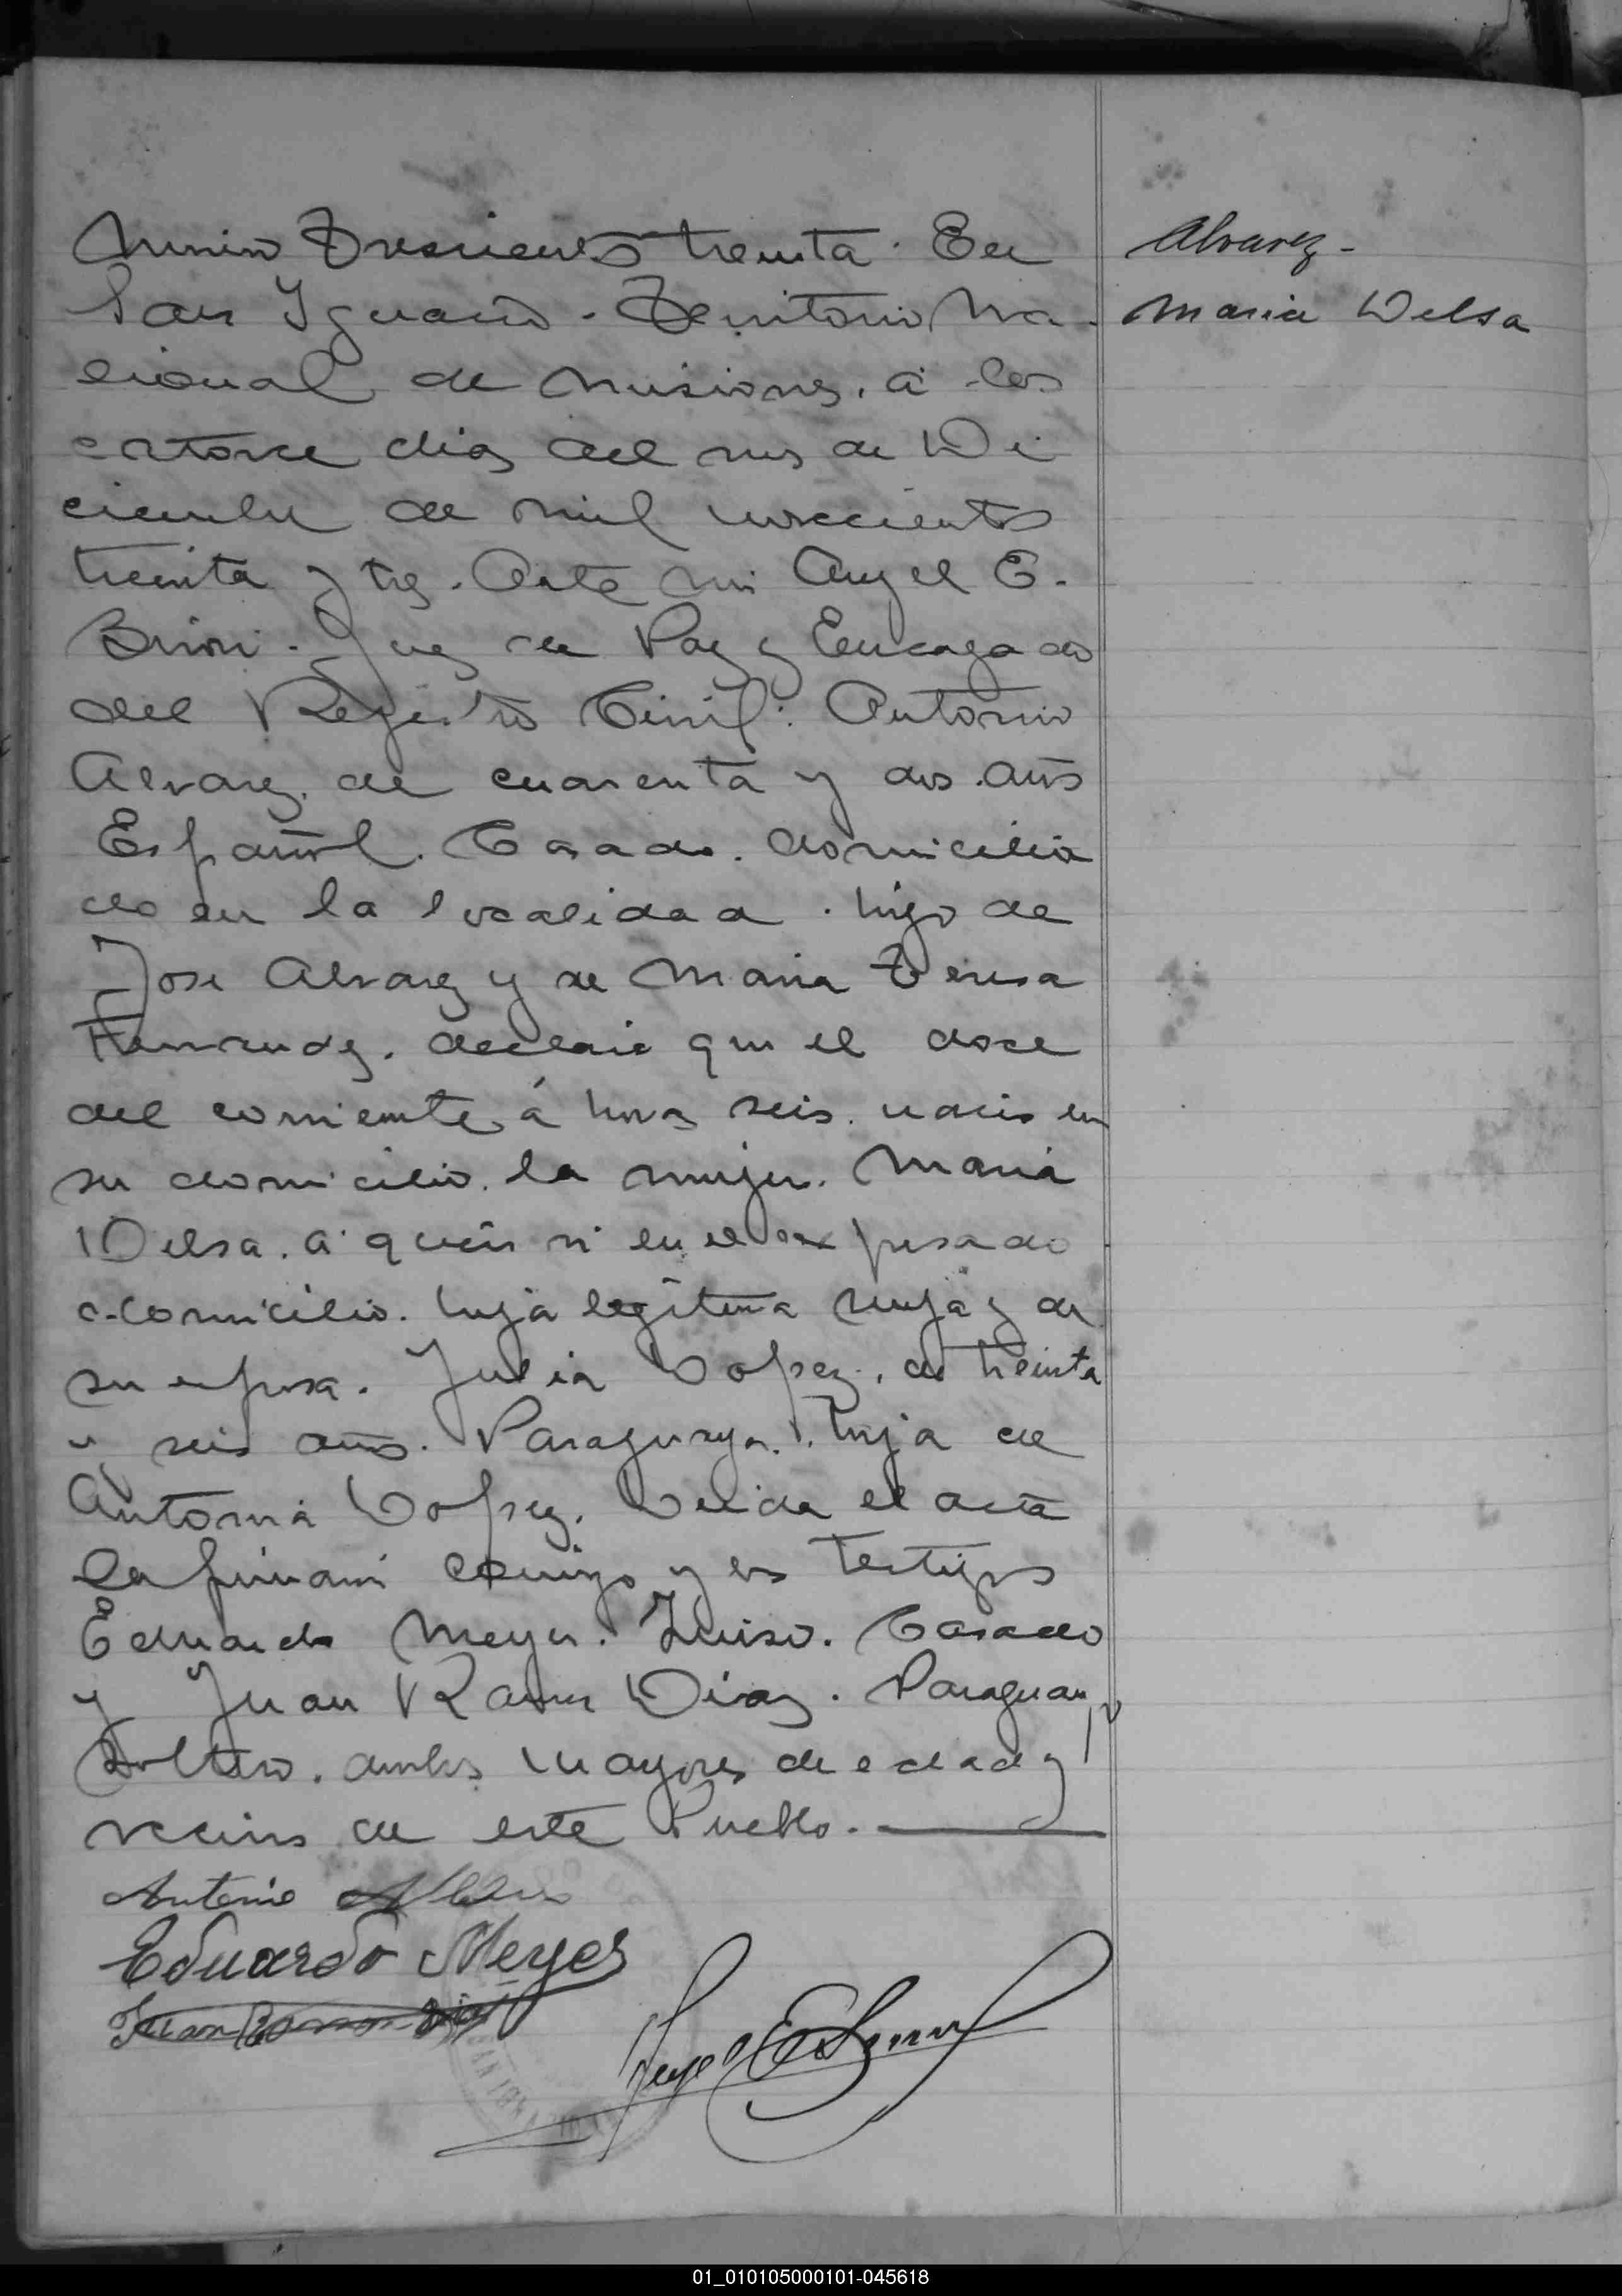 Numero Trescientos treinta. En
San Ignacio. Territorio Na-
cional de Misiones. a los
catorce dias del mes de Di
ciembre de mil novecientos
treinta y tres. Ante mi Angel E.
Juez de Paz y Encargado
del Registro Civil: Antonio
Alvarez. de cuarenta y dos años
Español. Casado. domicilia
do en la localidad. hijo de
Jose Alvarez y de Maria Teresa
Fernandez. declaró que el doce
del corriente á horas seis. nacio en
su domicilio. la mujer. Maria
Delsa. a quien vi en el expresado
domicilio. hija legitima suya y de
su esposa. Julia Lopez. de treinta
y seis años. Paraguaya. hija de
Antonia Lopez. Leida el acta
la firmaron conmigo y los testigos
Eduardo Meyer. Suiso. Casado
y Juan Ramon Diaz. Paraguayo
Soltero. ambos mayores de edad y
vecinos de este Pueblo.
Antonio
Eduardo Meyer
Juan Ramon Diaz
Alvarez-
Maria Delsa
01_010105000101-045618